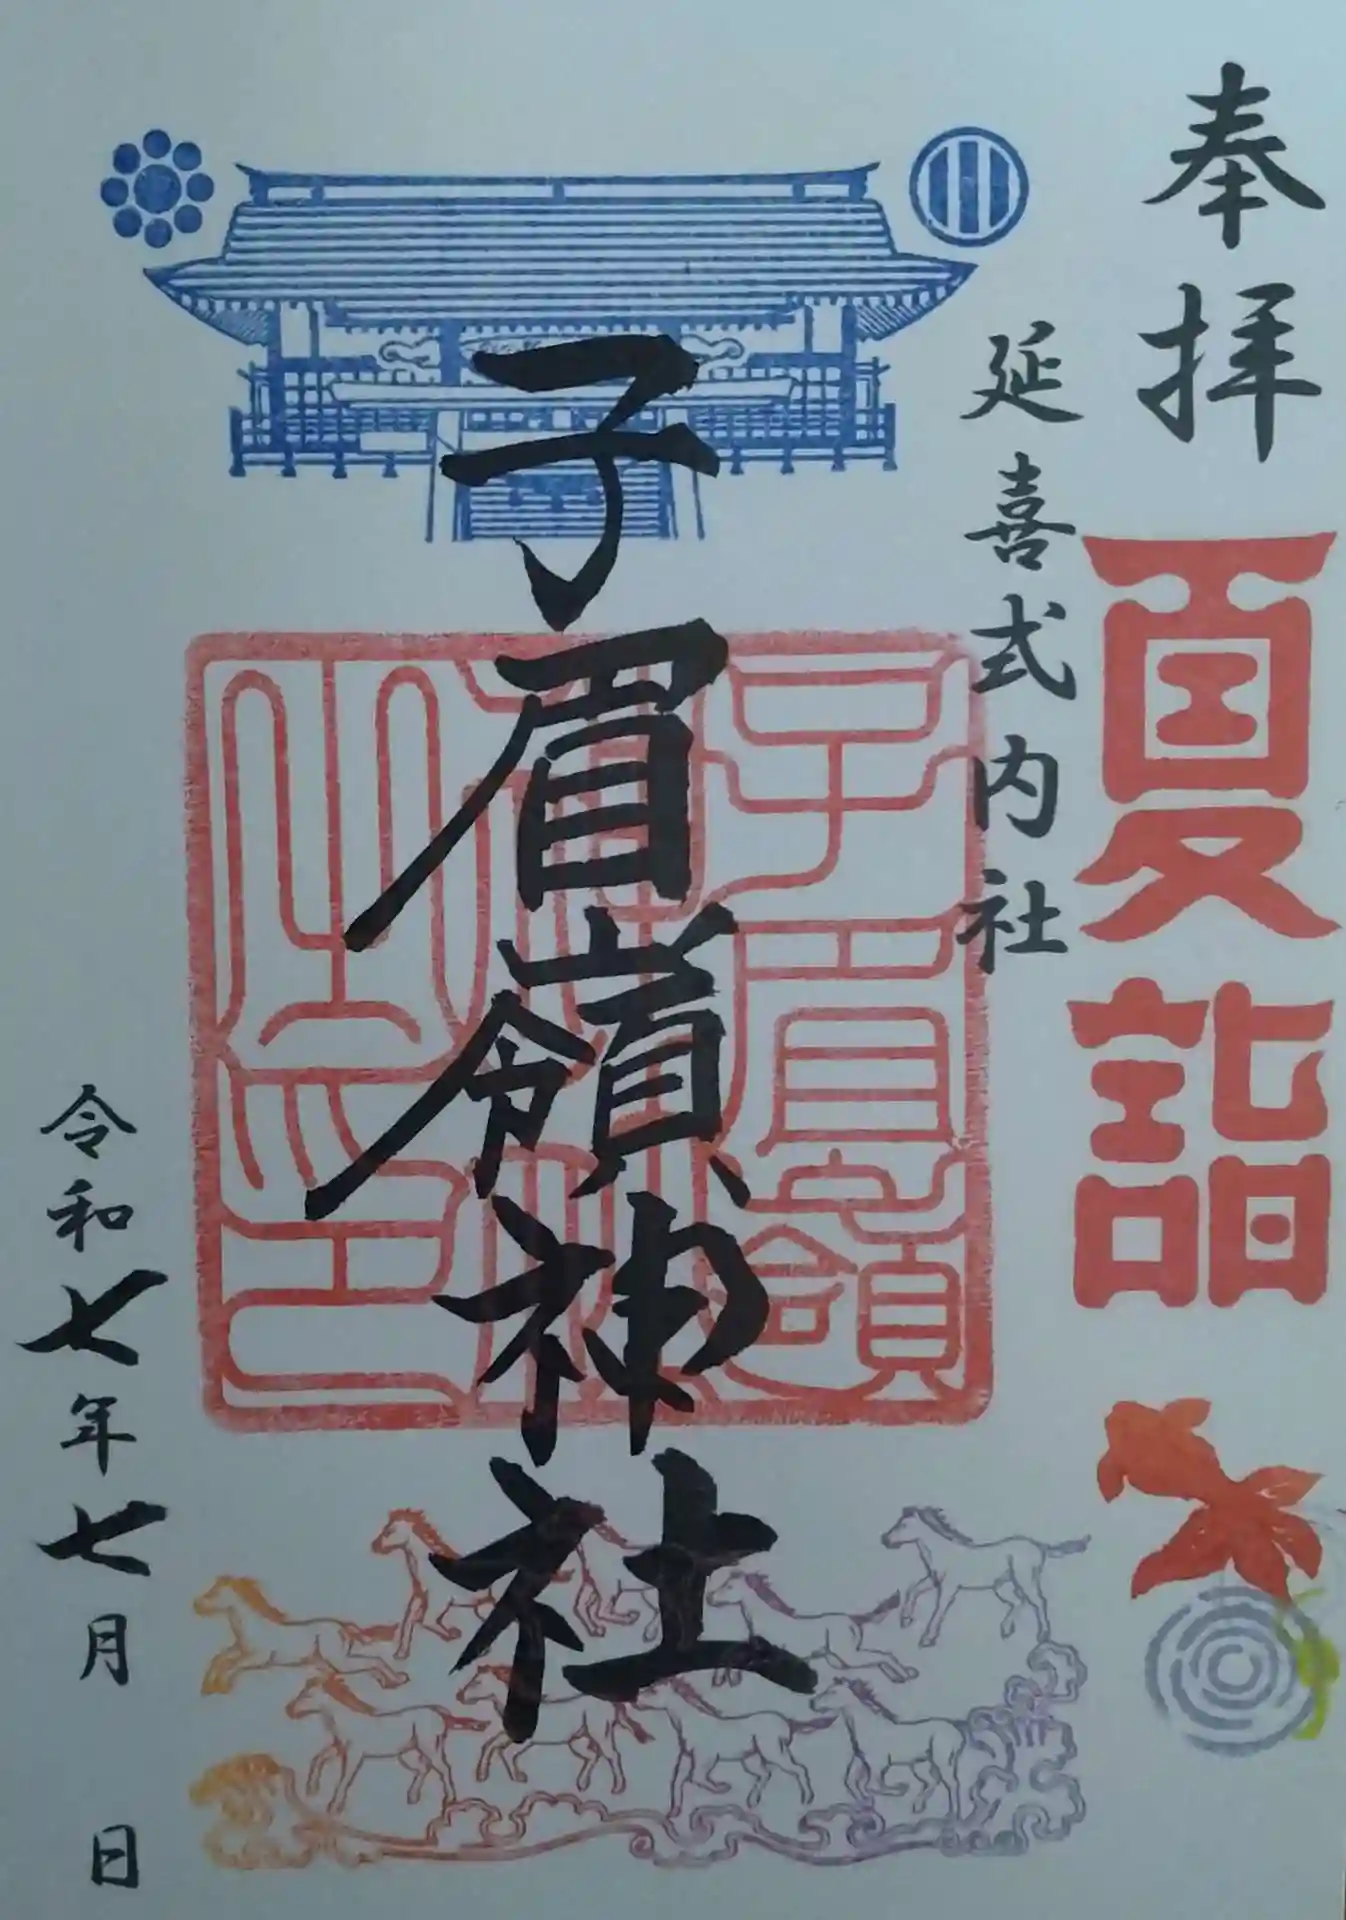 奉拝
夏詣
延喜式内社
子眉嶺神社
子眉嶺
神社
之印
令和七年七月 日